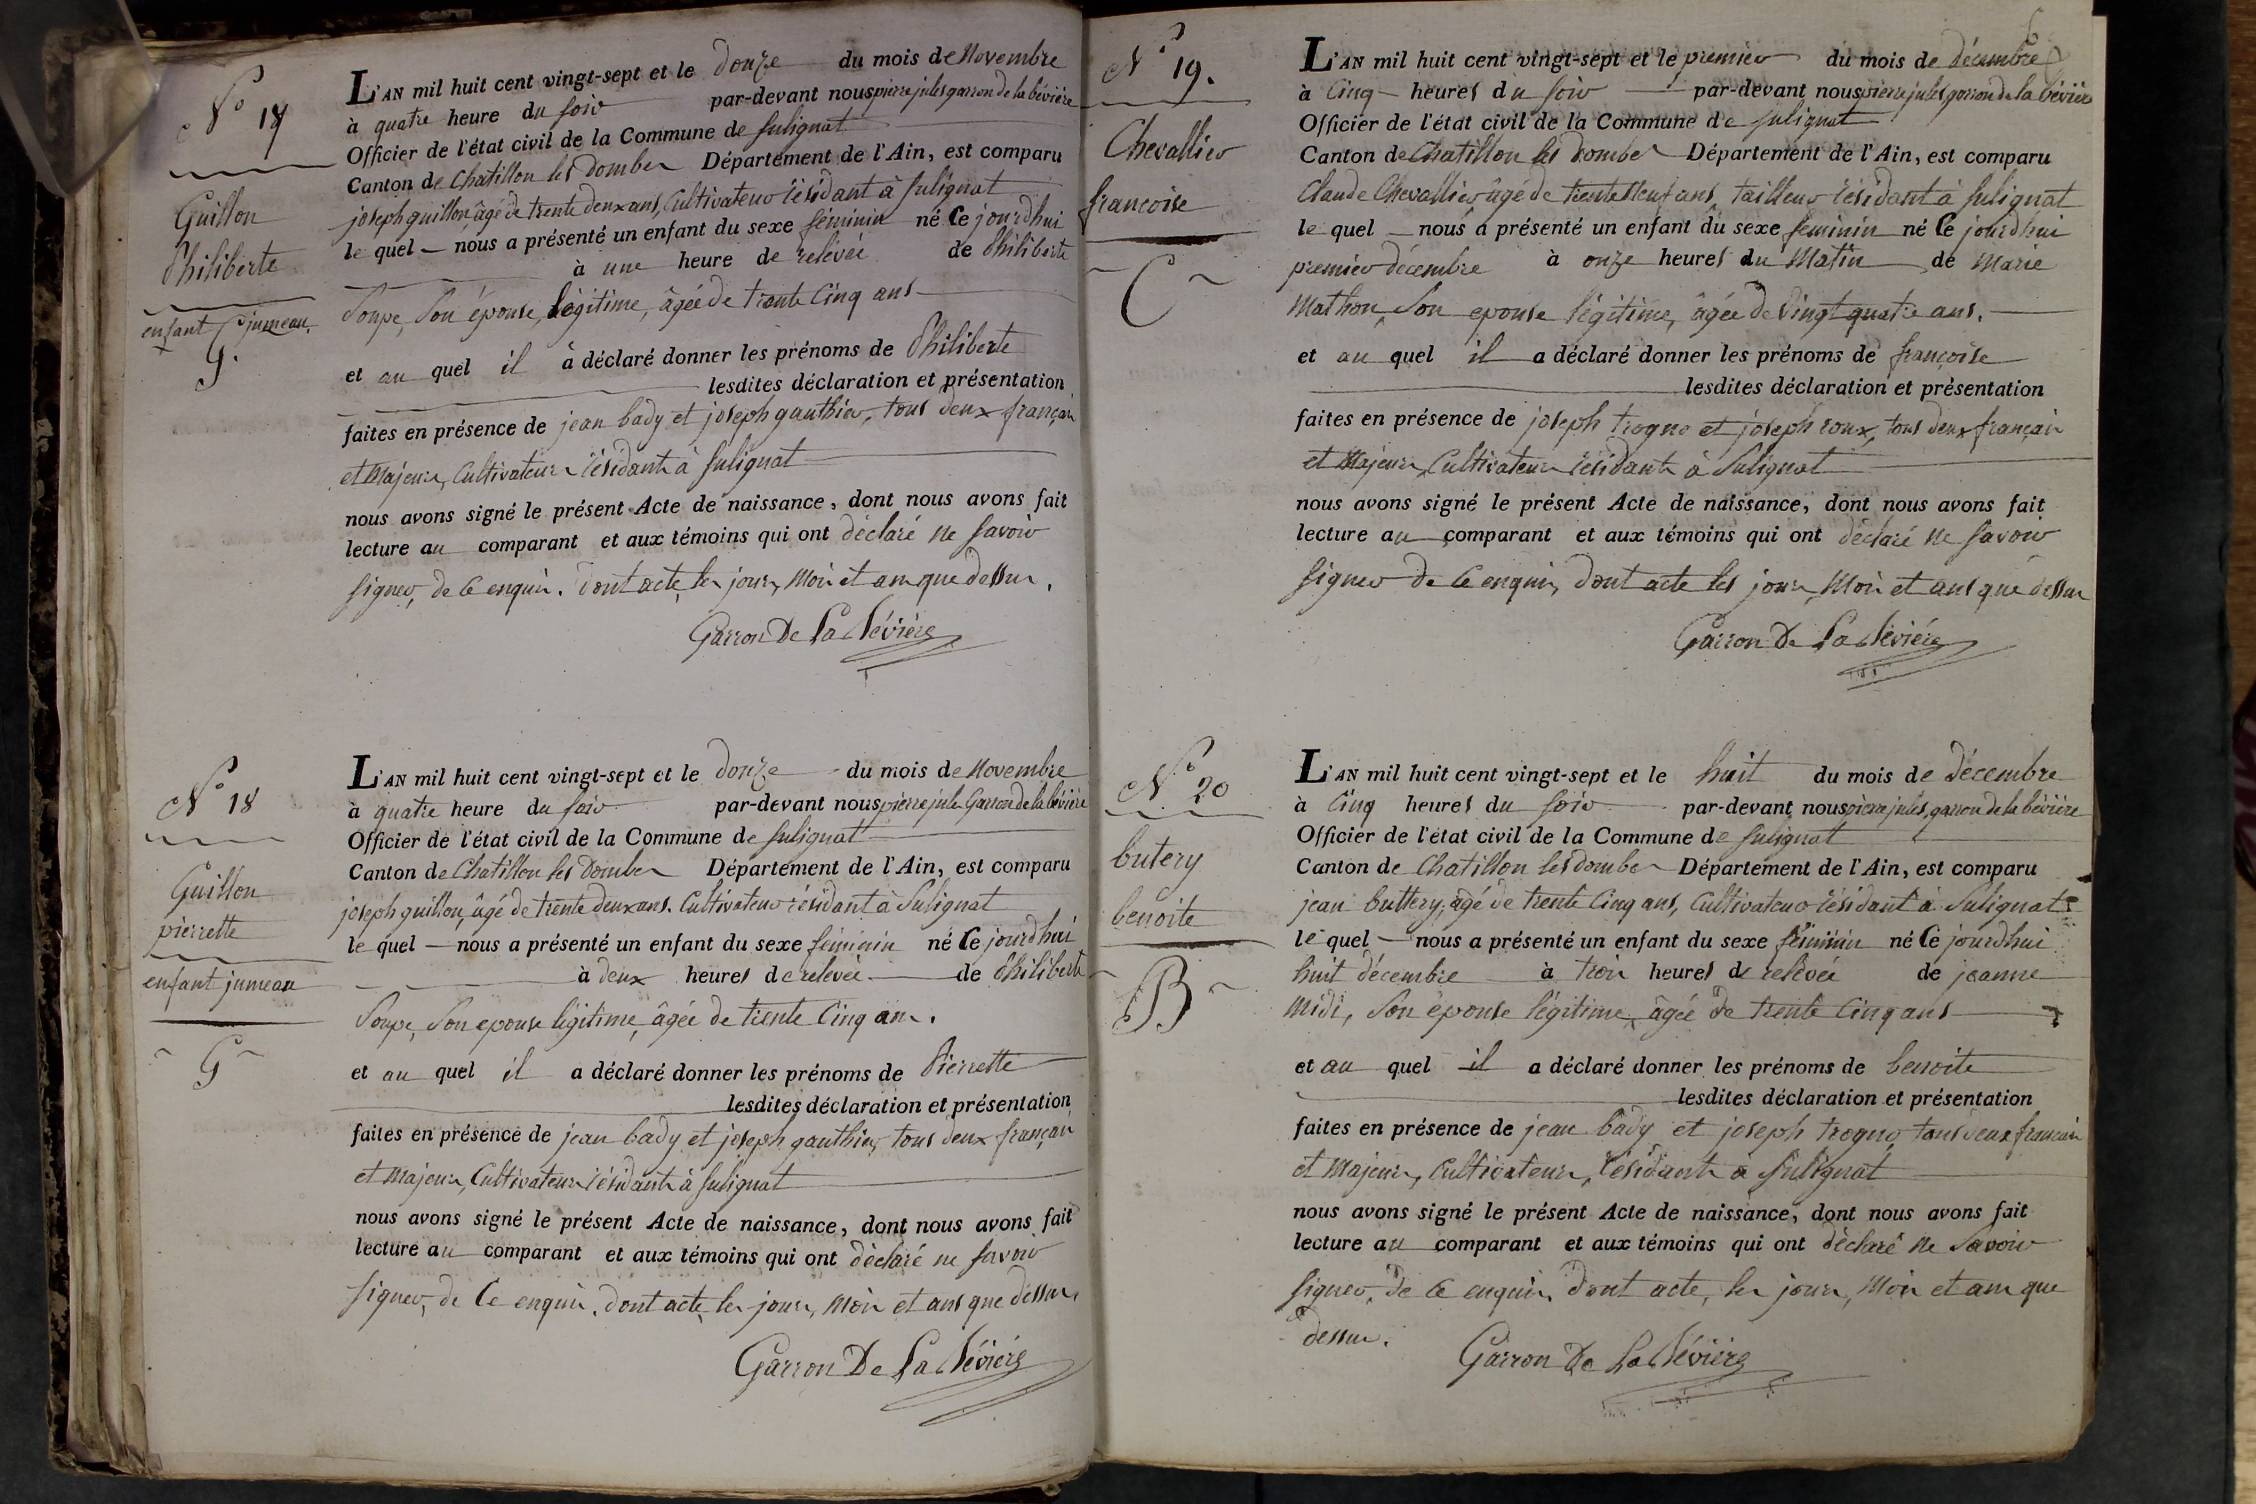 N° 17
Guillon
Philiberte
enfant jumeau.
G.
L'AN mil huit cent vingt-sept et le douze du mois de Novembre
à quatre heure du soir par-devant nous pierre jules garron de la bévière
Officier de l'état civil de la Commune de Sulignat
Canton de Chatillon les Dombes Département de l'Ain, est comparu
joseph guillon, âgé de trente deux ans, Cultivateur résidant à Sulignat
le quel nous a présenté un enfant du sexe féminin né Ce jourd'hui
à une heure de relevée de Philiberte
Soupe, Son épouse, légitime, âgée de trente Cinq ans
et au quel il a déclaré donner les prénoms de Philiberte
lesdites déclaration et présentation
faites en présence de jean bady et joseph gauthier, tous deux français
et Majeurs, Cultivateurs résidants à Sulignat
nous avons signé le présent Acte de naissance, dont nous avons fait
lecture au comparant et aux témoins qui ont déclaré ne Savoir
signer, de Ce enquis. Dont acte, les jours, Mois et an que dessus.
Garron De La Bévière
N° 18
Guillon
pierrette
enfant jumeau
G
L'AN mil huit cent vingt-sept et le douze du mois de Novembre
à quatre heure du soir par-devant nous pierre jules Garron de la bévière
Officier de l'état civil de la Commune de Sulignat
Canton de Chatillon les Dombes Département de l'Ain, est comparu
joseph guillon, âgé de trente deux ans. Cultivateur résidant à Sulignat
le quel nous a présenté un enfant du sexe féminin né Ce jourd'hui
à deux heures de relevée de Philiberte
Soupe, Son epouse légitime, âgée de trente Cinq ans.
et au quel il a déclaré donner les prénoms de Pierrette
lesdites déclaration et présentation
faites en présence de jean bady et joseph gauthier, tous deux français
et Majeurs, Cultivateurs résidants à Sulignat
nous avons signé le présent Acte de naissance, dont nous avons fait
lecture au comparant et aux témoins qui ont déclaré ne Savoir
signer, de Ce enquis. dont acte, les jours, Mois et ans que dessus,
Garron De La Bévière
N° 19.
Chevallier
francoise
C
L'AN mil huit cent vingt-sept et le premier du mois de décembre
à Cinq heures du soir par-devant nous pierre jules garron de la bévière
Officier de l'état civil de la Commune de Sulignat
Canton de Chatillon les Dombes Département de l'Ain, est comparu
Claude Chevallier âgé de trente Neuf ans, tailleur résidant à Sulignat
le quel nous a présenté un enfant du sexe féminin né Ce jourd'hui
premier décembre à onze heures du Matin de Marie
Mathon, Son epouse légitime, âgée de Vingt quatre ans.
et au quel il a déclaré donner les prénoms de françoise
lesdites déclaration et présentation
faites en présence de joseph trogno et joseph roux, tous deux français
et Majeurs, Cultivateurs résidants à Sulignat
nous avons signé le présent Acte de naissance, dont nous avons fait
lecture au comparant et aux témoins qui ont déclaré ne Savoir
signer de Ce enquis, dont acte les jours, Mois et ans que dessus
Garron De La Bévière
N° 20
butery
benoite
B
L'AN mil huit cent vingt-sept et le huit du mois de décembre
à Cinq heures du soir par-devant nous pierre jules, garron de la bévière
Officier de l'état civil de la Commune de Sulignat
Canton de Chatillon les dombes Département de l'Ain, est comparu
jean buttery, âgé de trente Cinq ans, Cultivateur résidant à Sulignat
le quel nous a présenté un enfant du sexe féminin né Ce jourd'hui
huit décembre à trois heures de relevée de jeanne
Midi, Son épouse légitime, âgée de trente Cinq ans
et au quel il a déclaré donner les prénoms de benoite
lesdites déclaration et présentation
faites en présence de jean bady et joseph trogno, tous deux français
et Majeurs, Cultivateurs, résidants à Sulignat
nous avons signé le présent Acte de naissance, dont nous avons fait
lecture au comparant et aux témoins qui ont déclaré ne Savoir
signer. De Ce enquis. dont acte, les jours, Mois et an que
dessus.
Garron De La Bévière